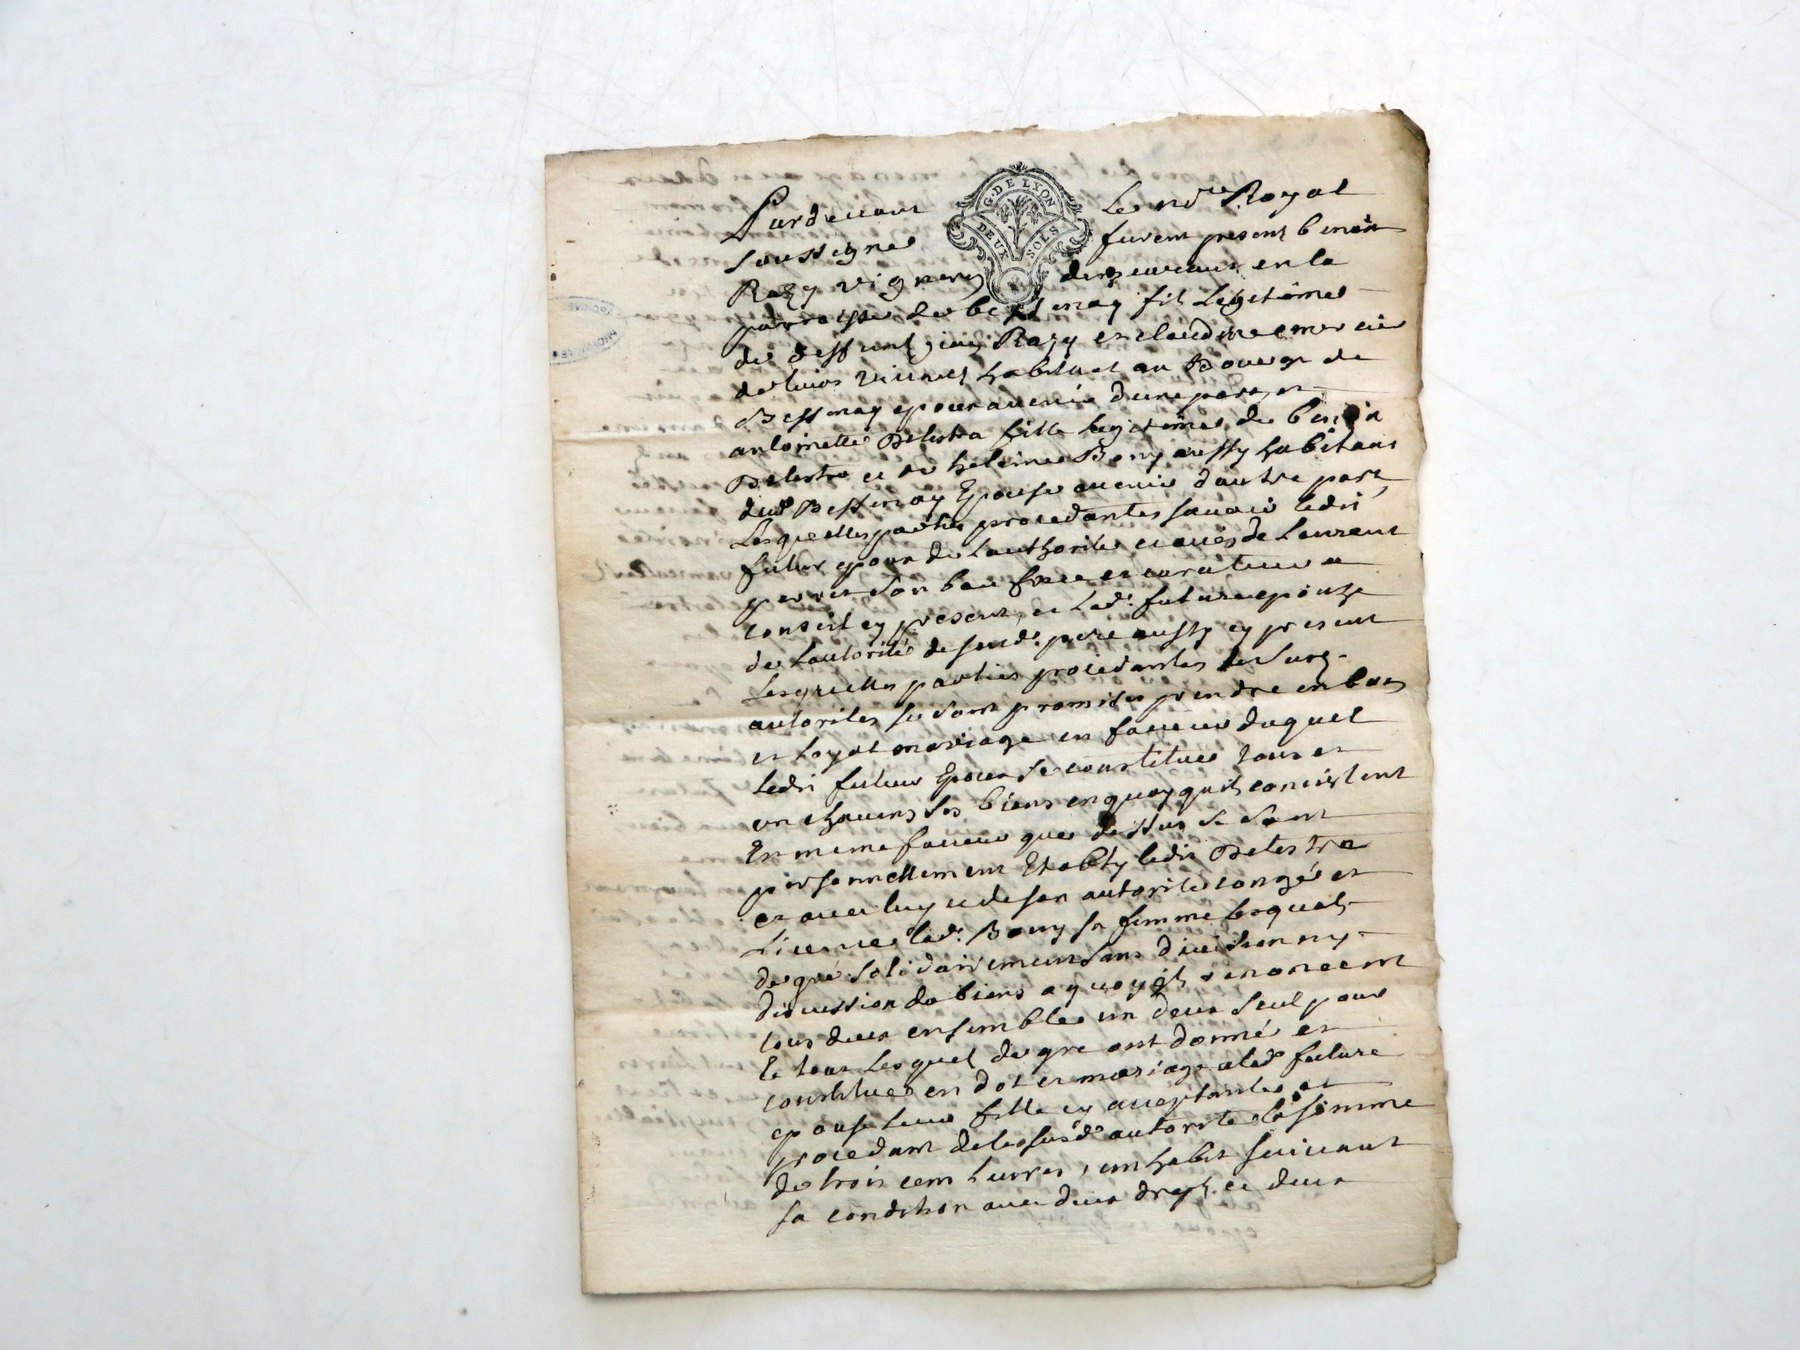 G. DE LYON
DEUX SOLS
Pardevant Le nore Royal
soussigne furent present benoit
Razy vigneron demeurant en la
parroisse de bessenay fil Legitime
de deffunt Razy et claudine mercier
habitant au Bourg de
Bessenay epour avenir d'une part, et
antoinette Delestra fille legitime de benoit
Delestra et de heleine Bony aussy habitans
dud Bessenay Epouse avenir d'autre part,
Lesquelles parties procedantes savoir ledit
futur epoux de Lauthorité et avis de Laurent
perret son beau frere et curateur a
conseil cy present, et Lad. future epouze
de Lautorité de sond. pere aussy cy present
Lesquelles parties procedantes de Surg.
autorites se sont promises prendre en bon
et Loyal mariage en faveur duquel
Ledit futur Epoux se constitue tous et
un chacuns ses biens en quoy quils consistent
En meme faveur que dessus se sont
personnellement Etably ledit Delestra
et avec luy et de son autorité congé et
Licence lad. Bony sa femme Lesquels
de gré solidairement sans division ny
discussion de biens a quoy ils renoncent
tous deux ensemble un deux seul pour
le tout Lesquel de gre ont donné et
constitué en dot et mariage a lad future
epouse leur fille cy acceptante et
procedant de la susd. autorité la somme
de trois cent Livres, un habit suivant
sa condition avec deux draps et deux